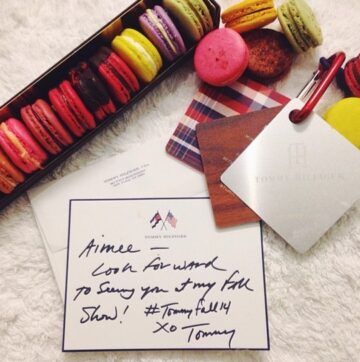 TOMMY HILFIGER
TOMMY HILFIGER
Aimee —
Look Forward
to Seeing you at my Fall
Show! #Tommyfall14
XO Tommy